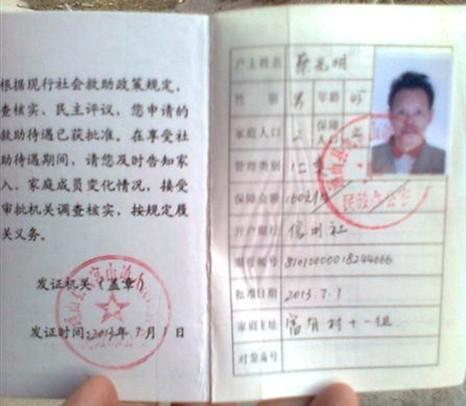 根据现行社会救助政策规定，
查核实、民主评议，您申请的
救助待遇已获批准。在享受社
助待遇期间，请您及时告知家
入、家庭成员变化情况，接受
审批机关调查核实，按规定履
关义务。
发证机关（盖章）
发证时间:2013年7月1日
户主姓名 蔡光明
性别 男 年龄
家庭人口 保障
管理类别
保障金额
开户银行 信用社
银行帐号
批准日期 2013.7.1
家庭住址 富有村十一组
对象编号
民政办公室